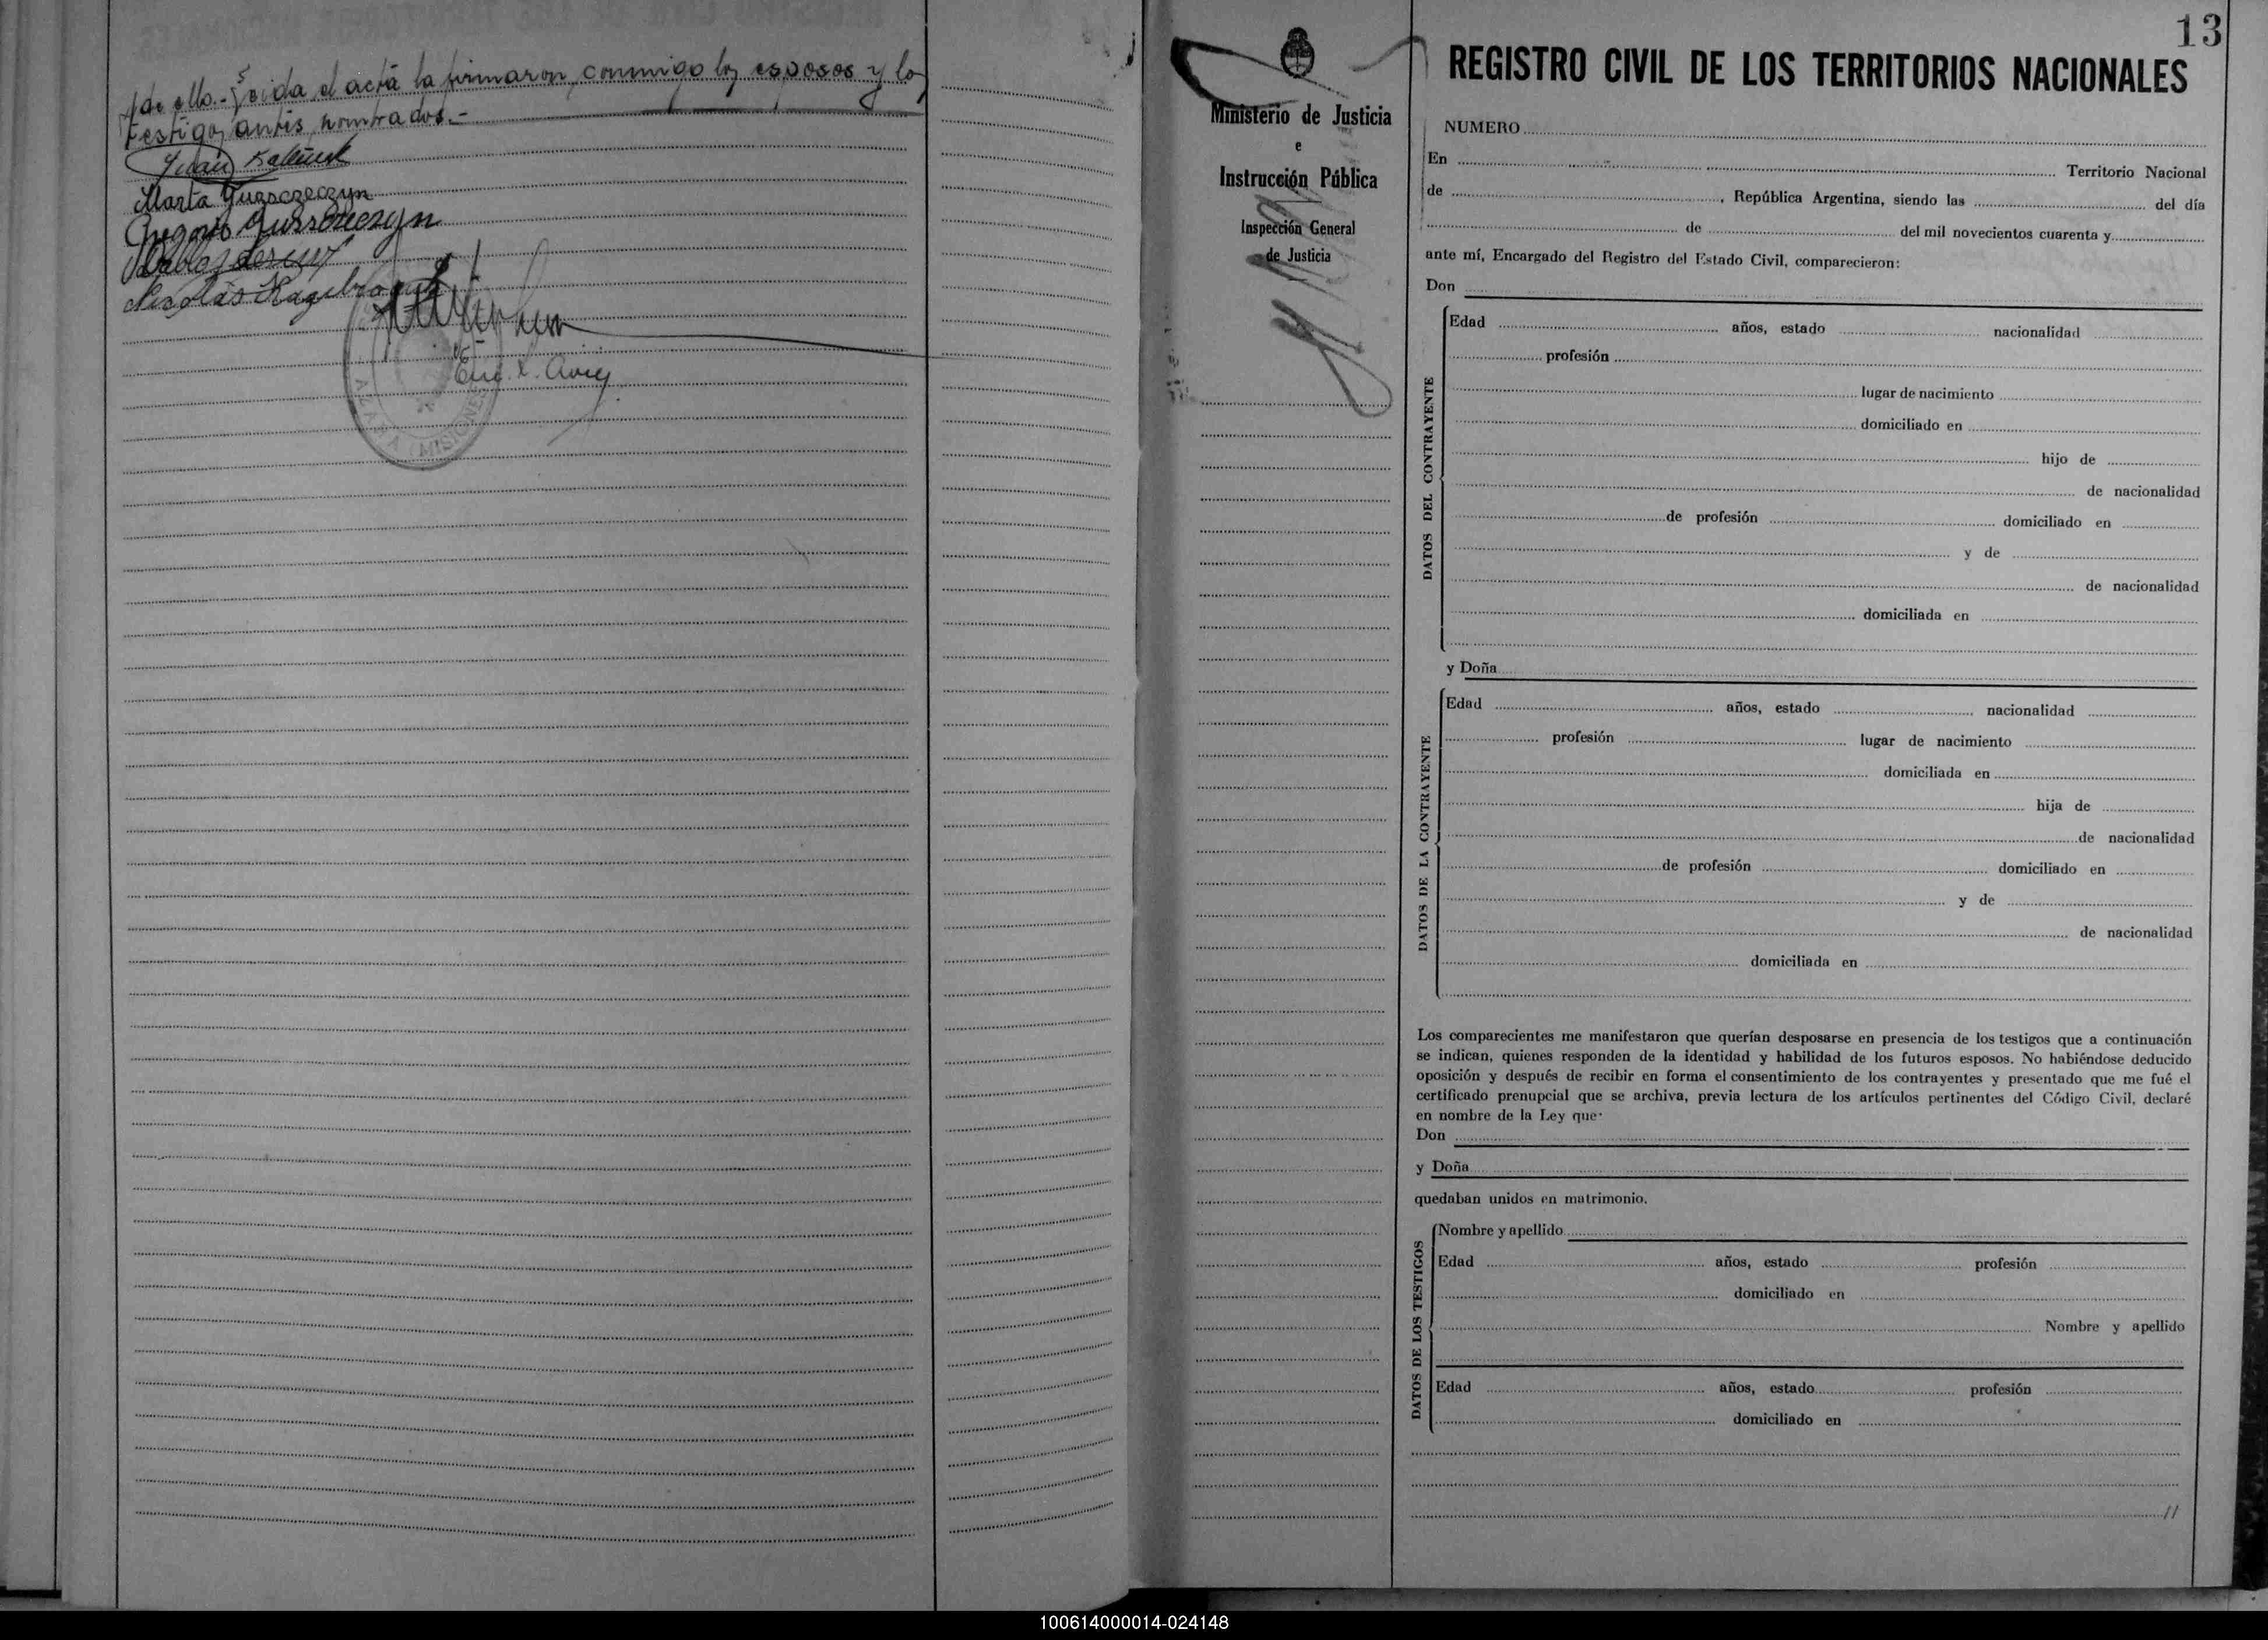 de ello.- Leida el acta la firmaron conmigo los esposos y los
testigos antes nombrados.-
Juan
Marta Gurszeczyn
Gregorio
Pablo
Nicolás
Enc. R. Civil
AZARA (MISIONES)
13
Ministerio de Justicia
e
Instrucción Pública
Inspección General
de Justicia
REGISTRO CIVIL DE LOS TERRITORIOS NACIONALES
NUMERO
En Territorio Nacional
de , República Argentina, siendo las del día
de del mil novecientos cuarenta y
ante mí, Encargado del Registro del Estado Civil, comparecieron:
Don
DATOS DEL CONTRAYENTE
Edad años, estado nacionalidad
profesión
lugar de nacimiento
domiciliado en
hijo de
de nacionalidad
de profesión domiciliado en
y de
de nacionalidad
domiciliada en
y Doña
DATOS DE LA CONTRAYENTE
Edad años, estado nacionalidad
profesión lugar de nacimiento
domiciliada en
hija de
de nacionalidad
de profesión domiciliado en
y de
de nacionalidad
domiciliada en
Los comparecientes me manifestaron que querían desposarse en presencia de los testigos que a continuación
se indican, quienes responden de la identidad y habilidad de los futuros esposos. No habiéndose deducido
oposición y después de recibir en forma el consentimiento de los contrayentes y presentado que me fué el
certificado prenupcial que se archiva, previa lectura de los artículos pertinentes del Código Civil, declaré
en nombre de la Ley que:
Don
y Doña
quedaban unidos en matrimonio.
DATOS DE LOS TESTIGOS
Nombre y apellido
Edad años, estado profesión
domiciliado en
Nombre y apellido
Edad años, estado profesión
domiciliado en
//
100614000014-024148